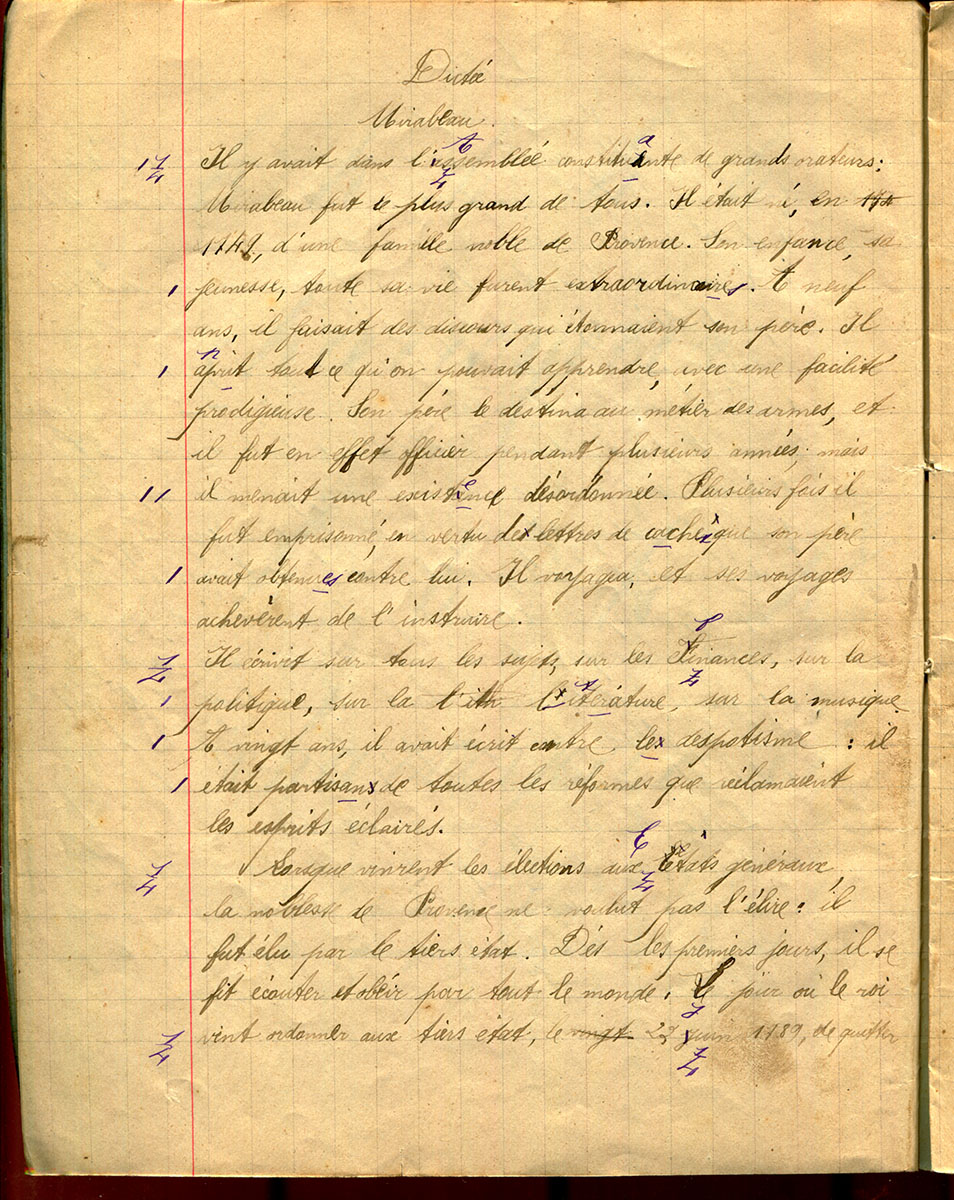 Dictée
Mirabeau.
Il y avait dans l'assemblée constituante de grands orateurs;
Mirabeau fut le plus grand de tous. Il était né, en 174
1749, d'une famille noble de Provence. Son enfance, sa
jeunesse, toute sa vie furent extraordinaires. A neuf
ans, il faisait des discours qui étonnaient son père. Il
aprit tout ce qu'on pouvait apprendre, avec une facilité
prodigieuse. Son père le destina au métier des armes, et
il fut en effet officier pendant plusieurs années; mais
il menait une existence désordonnée. Plusieurs fois il
fut emprisonné, en vertu des lettres de cachet que son père
avait obtenues contre lui. Il voyagea, et ses voyages
achevèrent de l'instruire.
Il écrivit sur tous les sujets, sur les Finances, sur la
politique, sur la lith litérature, sur la musique.
A vingt ans, il avait écrit contre les despotisme : il
était partisans de toutes les réformes que réclamaient
les esprits éclairés.
Lorsque vinrent les élections aux États généraux,
la noblesse de Provence ne voulut pas l'élire : il
fut élu par le tiers état. Dés les premiers jours, il se
fit écouter et obéir par tout le monde. Le jour où le roi
vint ordonner aux tiers état, le vingt 23 juin 1789, de quitter